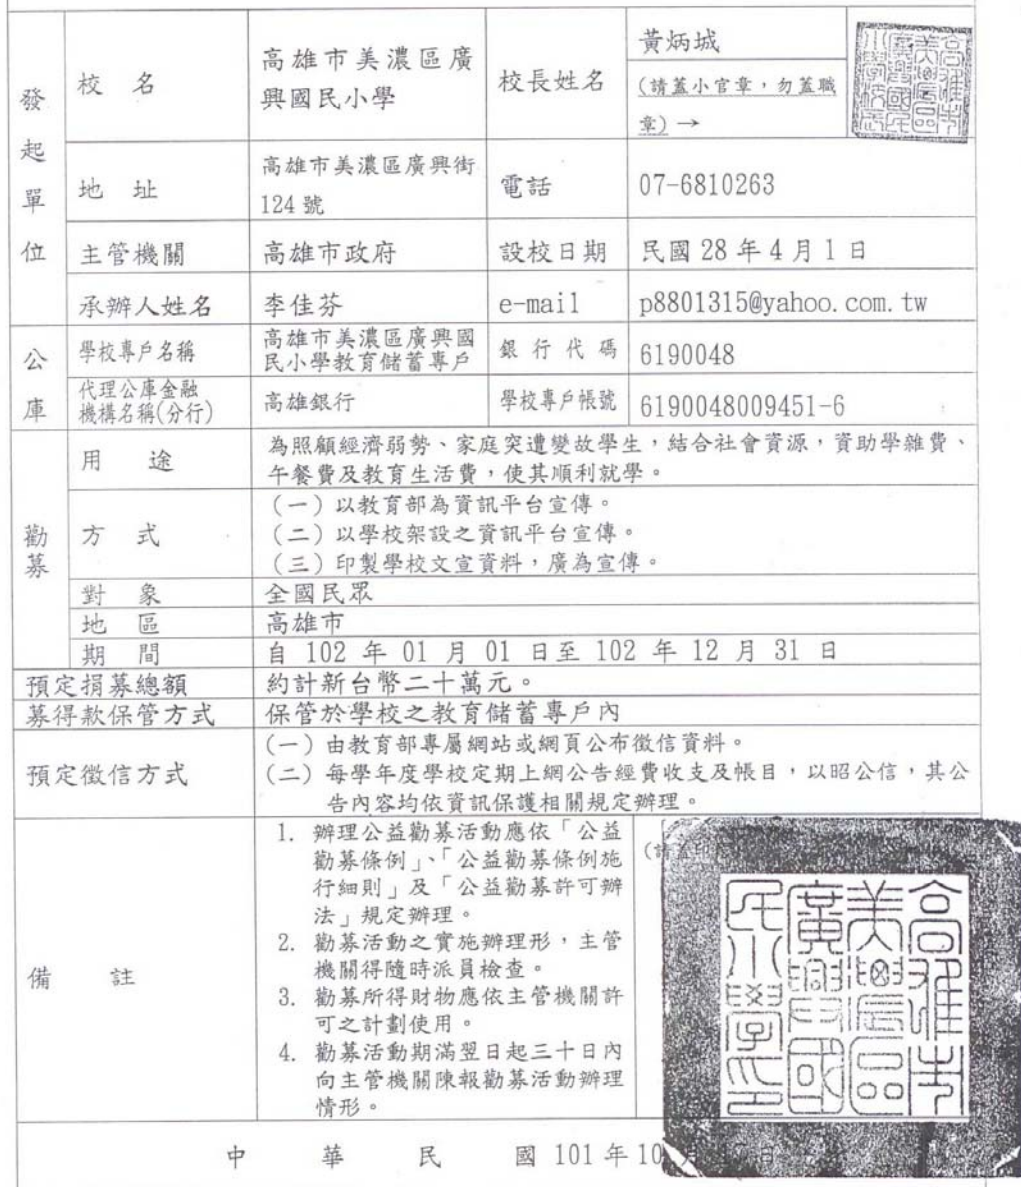 發起單位
校 名
高雄市美濃區廣
興國民小學
校長姓名
黃炳城
(請蓋小官章,勿蓋職
章)→
高雄市
美濃區
廣興國民
小學校長
地 址
高雄市美濃區廣興街
124 號
電話
07-6810263
主管機關
高雄市政府
設校日期
民國 28 年 4 月 1 日
承辦人姓名
李佳芬
e-mail
p8801315@yahoo.com.tw
公庫
學校專戶名稱
高雄市美濃區廣興國
民小學教育儲蓄專戶
銀行代碼
6190048
代理公庫金融
機構名稱(分行)
高雄銀行
學校專戶帳號
6190048009451-6
勸募
用 途
為照顧經濟弱勢、家庭突遭變故學生,結合社會資源,資助學雜費、
午餐費及教育生活費,使其順利就學。
方 式
(一)以教育部為資訊平台宣傳。
(二)以學校架設之資訊平台宣傳。
(三)印製學校文宣資料,廣為宣傳。
對 象
全國民眾
地 區
高雄市
期 間
自 102 年 01 月 01 日至 102 年 12 月 31 日
預定捐募總額
約計新台幣二十萬元。
募得款保管方式
保管於學校之教育儲蓄專戶內
預定徵信方式
(一)由教育部專屬網站或網頁公布徵信資料。
(二)每學年度學校定期上網公告經費收支及帳目,以昭公信,其公
告內容均依資訊保護相關規定辦理。
備 註
1. 辦理公益勸募活動應依「公益
勸募條例」、「公益勸募條例施
行細則」及「公益勸募許可辦
法」規定辦理。
2. 勸募活動之實施辦理形,主管
機關得隨時派員檢查。
3. 勸募所得財物應依主管機關許
可之計劃使用。
4. 勸募活動期滿翌日起三十日內
向主管機關陳報勸募活動辦理
情形。
(請蓋印
高雄市
美濃區
廣興國
民小學印
中 華 民 國 101 年 10 月 日